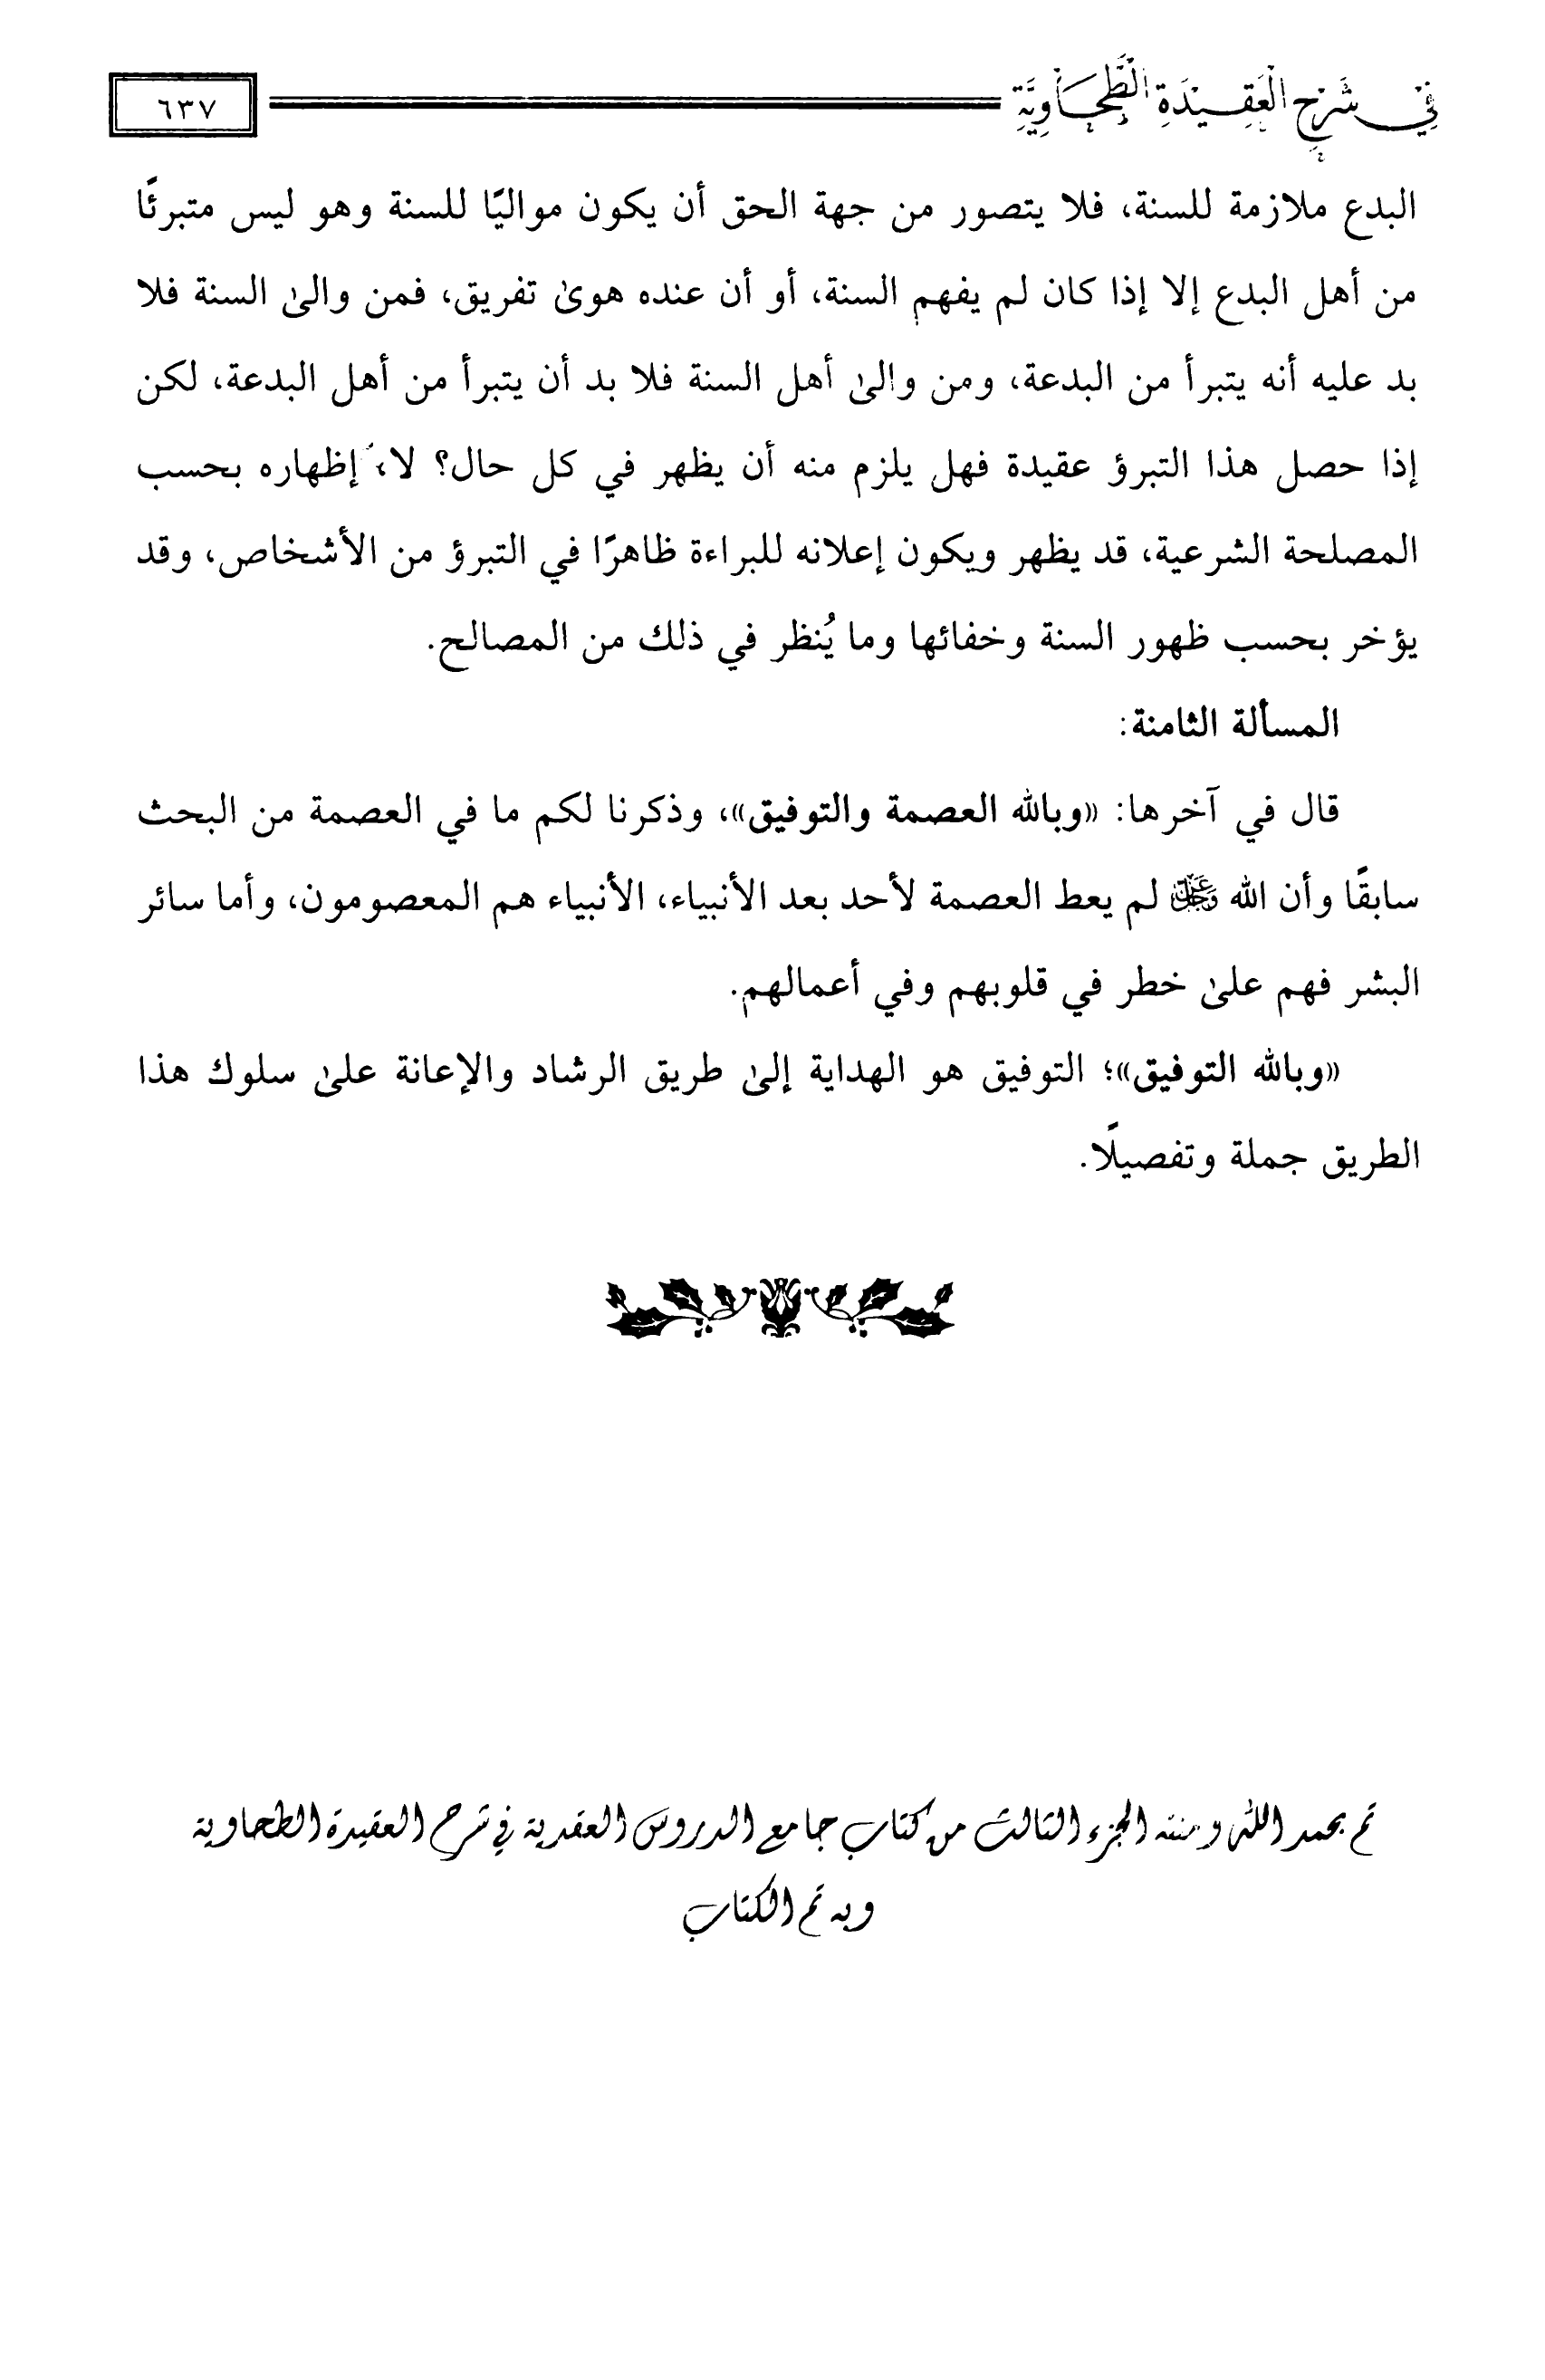 في شَرْحِ الْعَقِيدَةِ الطَّحَاوِيَّةِ
٦٣٧
البدع ملازمة للسنة، فلا يتصور من جهة الحق أن يكون مواليًا للسنة وهو ليس متبرئًا
من أهل البدع إلا إذا كان لم يفهم السنة، أو أن عنده هوىٰ تفريق، فمن والىٰ السنة فلا
بد عليه أنه يتبرأ من البدعة، ومن والىٰ أهل السنة فلا بد أن يتبرأ من أهل البدعة، لكن
إذا حصل هذا التبرؤ عقيدة فهل يلزم منه أن يظهر في كل حال؟ لا، إظهاره بحسب
المصلحة الشرعية، قد يظهر ويكون إعلانه للبراءة ظاهرًا في التبرؤ من الأشخاص، وقد
يؤخر بحسب ظهور السنة وخفائها وما يُنظر في ذلك من المصالح.
المسألة الثامنة:
قال في آخرها: «وبالله العصمة والتوفيق»، وذكرنا لكم ما في العصمة من البحث
سابقًا وأن الله عَزَّ وَجَلَّ لم يعط العصمة لأحد بعد الأنبياء، الأنبياء هم المعصومون، وأما سائر
البشر فهم علىٰ خطر في قلوبهم وفي أعمالهم.
«وبالله التوفيق»؛ التوفيق هو الهداية إلىٰ طريق الرشاد والإعانة علىٰ سلوك هذا
الطريق جملة وتفصيلًا.
تم بحمد الله ومنته الجزء الثالث من كتاب جامع الدروس العقدية في شرح العقيدة الطحاوية
وبه تم الكتاب